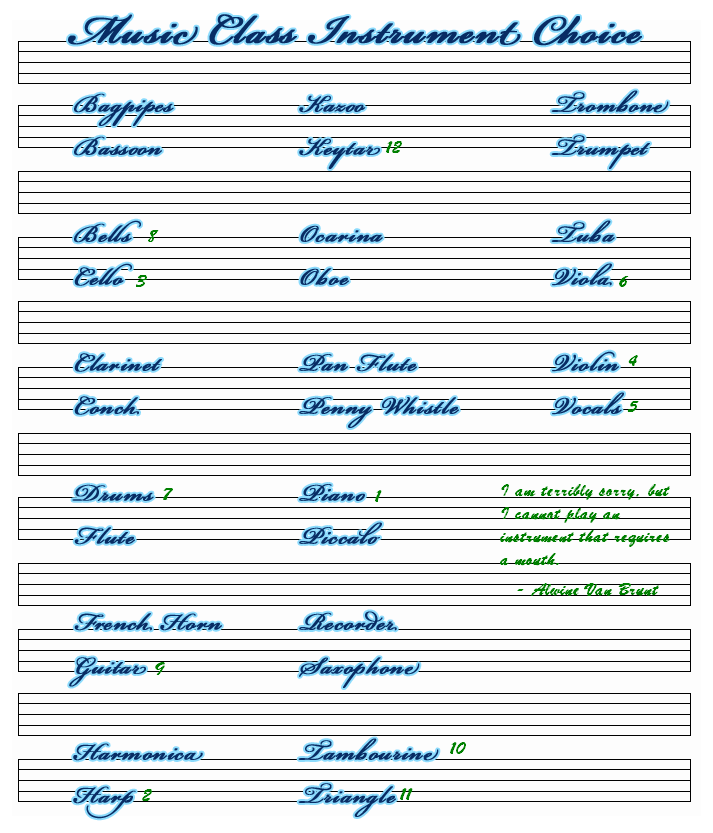 Music Class Instrument Choice
Bagpipes Kazoo Trombone
Bassoon Keytar 12 Trumpet
Bells 8 Ocarina Tuba
Cello 3 Oboe Viola 6
Clarinet Pan Flute Violin 4
Conch Penny Whistle Vocals 5
Drums 7 Piano 1
Flute Piccalo
French Horn Recorder
Guitar 9 Saxophone
Harmonica Tambourine 10
Harp 2 Triangle 11
I am terribly sorry, but
I cannot play an
instrument that requires
a mouth.
- Alwine Van Brunt